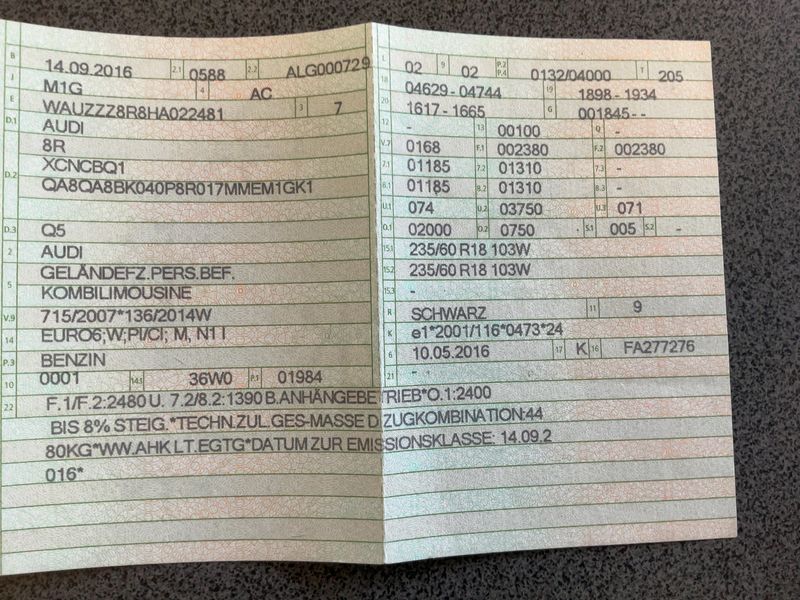 B 14.09.2016 2.1 0588 2.2 ALG000729
J M1G 4 AC
E WAUZZZ8R8HA022481 3 7
D.1 AUDI
8R
D.2 XCNCBQ1
QA8QA8BK040P8R017MMEM1GK1
D.3 Q5
2 AUDI
5 GELÄNDEFZ.PERS.BEF.
KOMBILIMOUSINE
V.9 715/2007*136/2014W
14 EURO6;W;PI/CI; M, N1 I
P.3 BENZIN
10 0001 14.1 36W0 P.1 01984
L 02 9 02 P.2 P.4 0132/04000 T 205
18 04629-04744 19 1898-1934
20 1617-1665 G 001845--
12 - 13 00100 Q -
V.7 0168 F.1 002380 F.2 002380
7.1 01185 7.2 01310 7.3 -
8.1 01185 8.2 01310 8.3 -
U.1 074 U.2 03750 U.3 071
O.1 02000 O.2 0750 S.1 005 S.2 -
15.1 235/60 R18 103W
15.2 235/60 R18 103W
15.3 -
R SCHWARZ 11 9
K e1*2001/116*0473*24
6 10.05.2016 17 K 16 FA277276
21 -
22 F.1/F.2:2480 U. 7.2/8.2:1390 B.ANHÄNGEBETRIEB*O.1:2400
BIS 8% STEIG.*TECHN.ZUL.GES-MASSE D ZUGKOMBINATION:44
80KG*WW.AHK LT.EGTG*DATUM ZUR EMISSIONSKLASSE: 14.09.2
016*